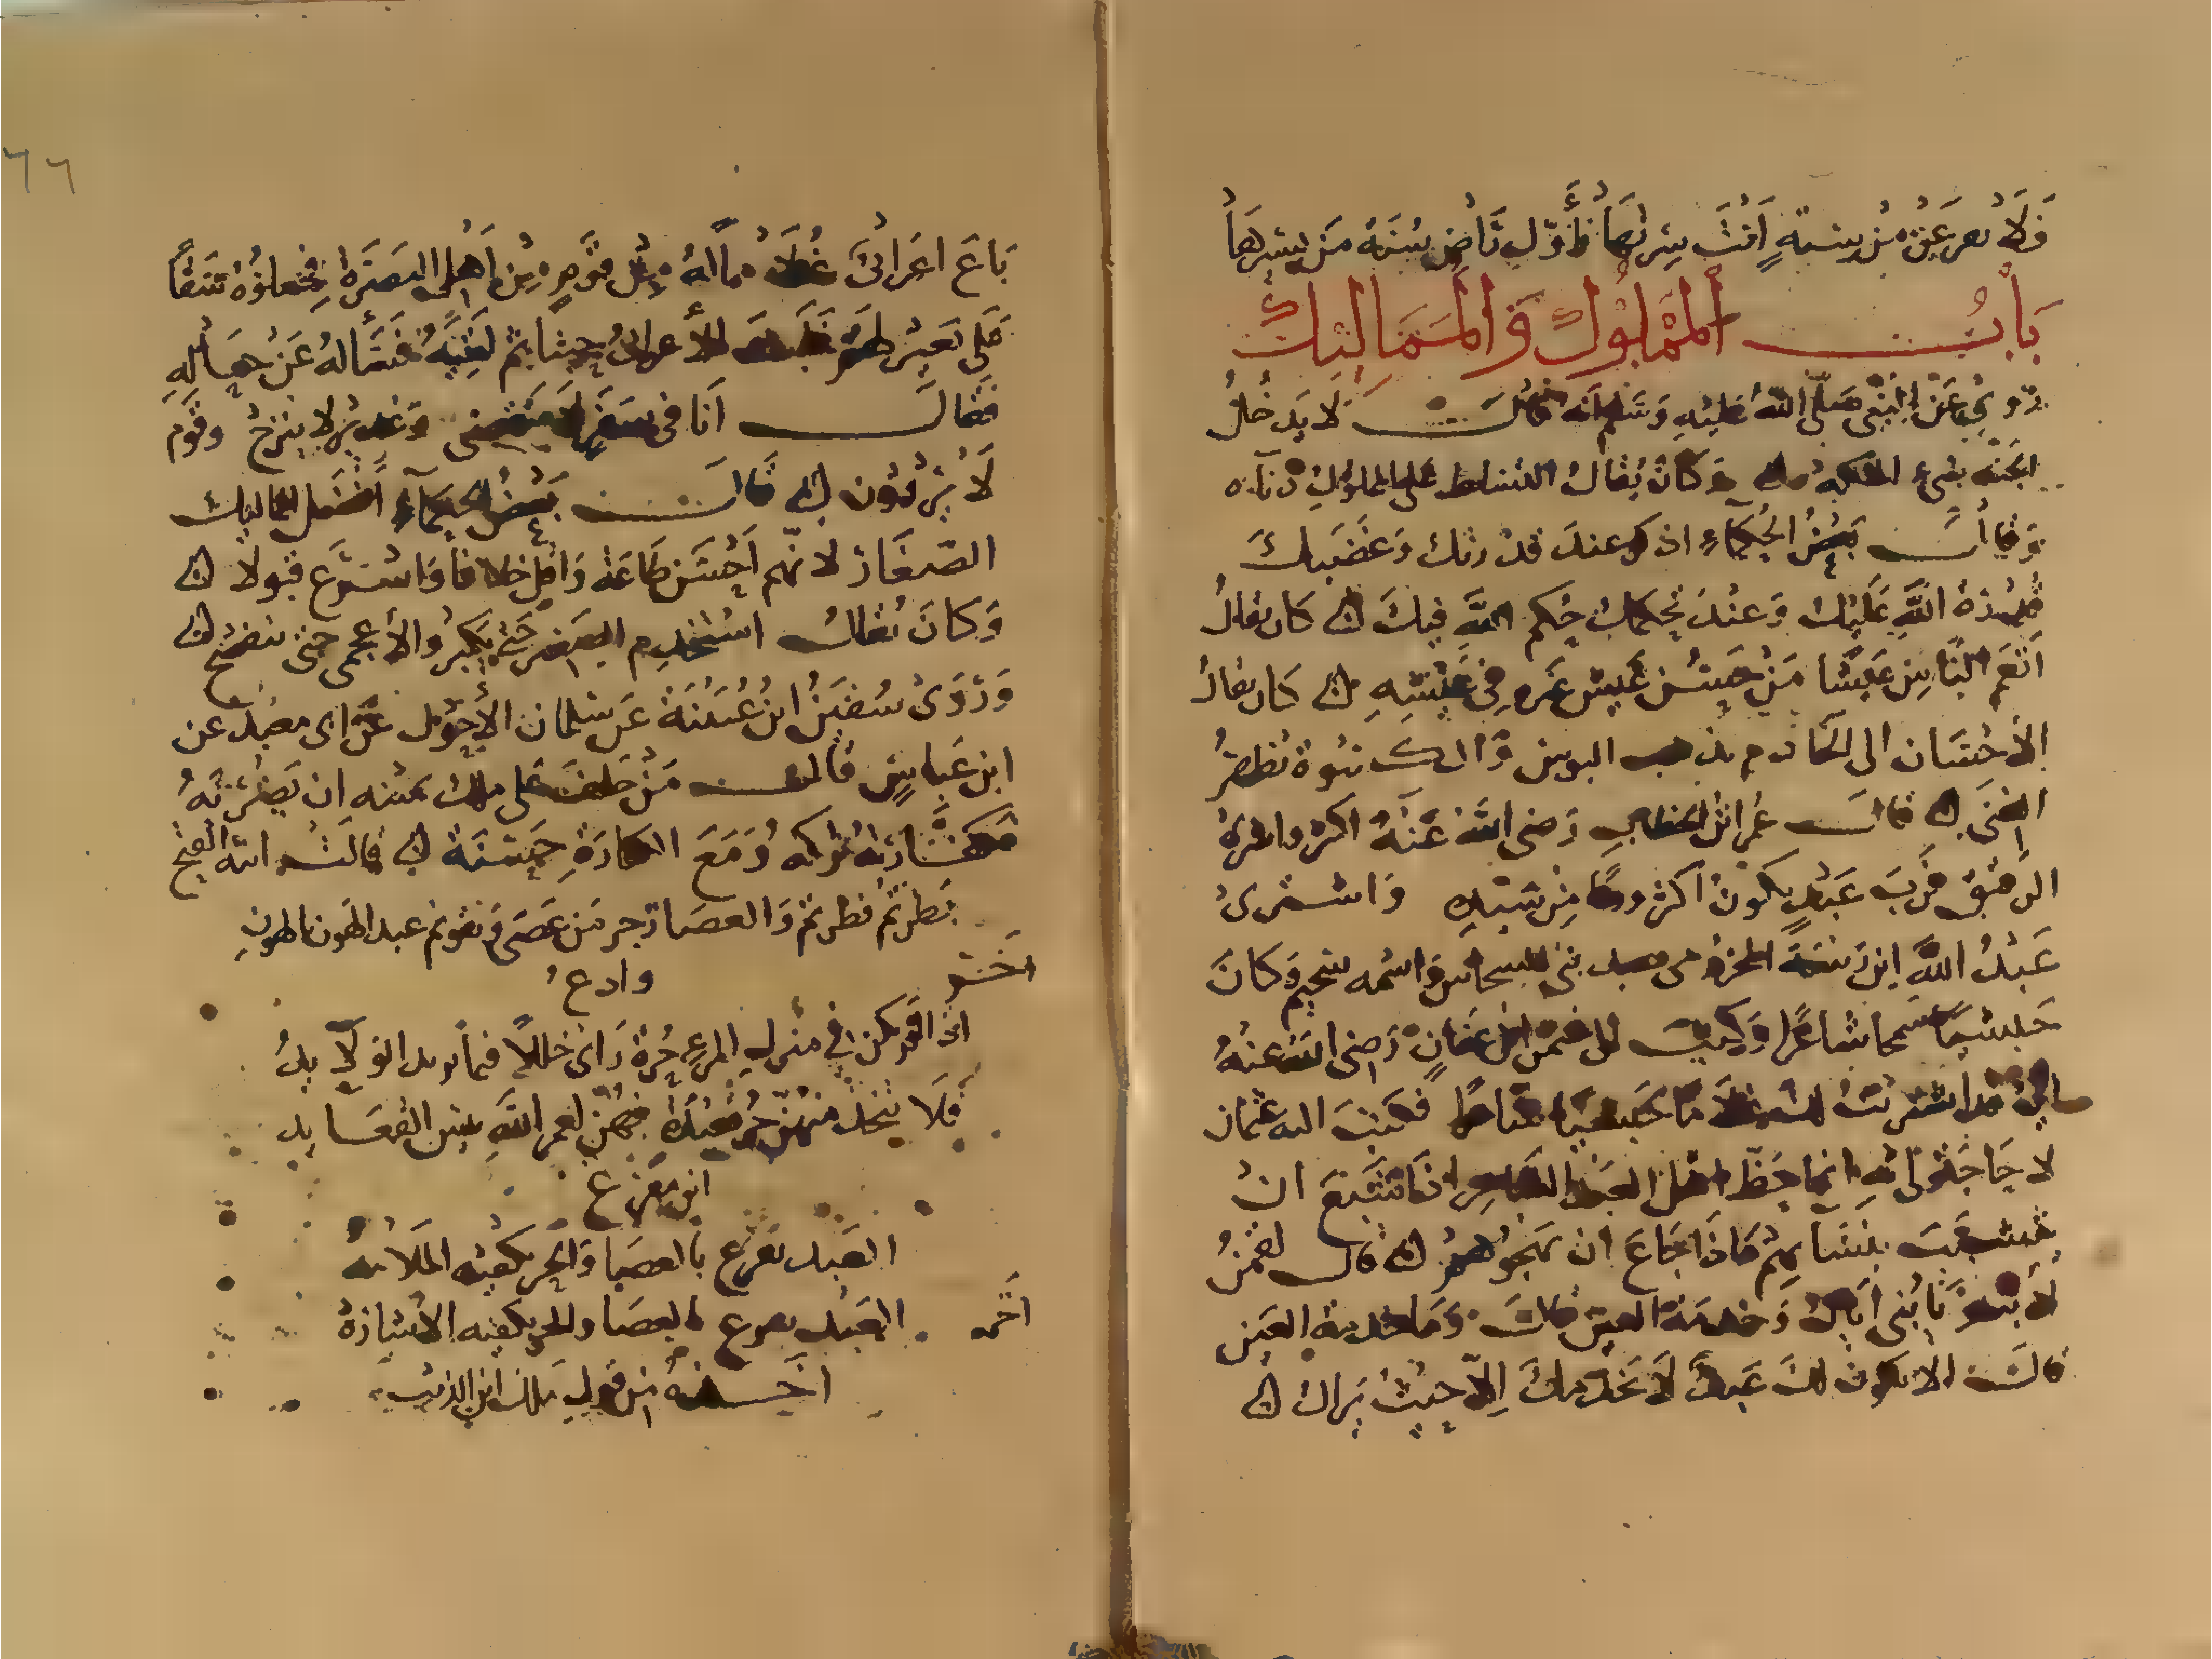 فَلَا تجزعن من سنةٍ أنتَ سرتها فأوّل راضٍ سنة من يسيرها
بَابُ المَمْلُوكِ وَالمَمَالِيكِ
رُوِيَ عَن النبي صَلَّى اللهُ عَلَيْهِ وَسَلَّم أنه قَالَ لَا يَدخُلُ
الجنة سيء الملكة وَكَانَ يُقَالُ التسلط على المملوك دناءه
وَقَالَ بَعْضُ الحُكَمَاءِ اذكر عندَ قدرتك وَغَضَبِكَ
قدرة اللهِ عَلَيْكَ وَعِنْدَ حكمك حكم اللهِ فيكَ كان يقالُ
أنعَم النَّاسِ عَيشًا مَنْ حَسُن عَيش غيره في عَيشِهِ كَان يقالُ
الاحسان الى الخادم يذهب البوس والكسوة تظهرُ
الغنى قالَ عمر ابن الخطاب رَضى اللهُ عَنهُ اكثروا شراء
الرقيق فرُبَ عَبْدٍ يكونُ اكثر رزقًا مِن سَيدِهِ وَاشترى
عَبْدُ اللهِ ابن ربيعة المخزومى عبد بنى الحسحاس وَاسمه سحيم وَكَانَ
حَبشيًا شاعرًا وَكتبَ الى عثمن ابن عفانٍ رَضى اللهُ عنهُ
انى قد اشتريتُ لك غلامًا حَبشيًا شاعرًا فكتبَ اليه عثمان
لا حَاجَةَ لى به انما حَظّ اهل العبد الشاعر اذا شبعَ انْ
يشببَ بنسآئهم وَاذا جَاعَ ان يهجوهم قال لقمنُ
لابنه يَا بُنى إيَاك وَخدمة العين قالَ وَمَا خدمة العين
قالَ الا يكون لكَ عَبدٌ لا يخدمكَ إلّا حيثُ يَراك
٦٦
بَاعَ اعرابىٌ غُلَامًا لهُ مِن قَومٍ مِنْ أهلِ البَصْرَة فجعلوُهُ سَقّاً
عَلى بَعيرٍ لهُم الأعرابىُ حينا ثم لقيَهُ فسَألهُ عَنْ حَاله
فقالَ انَا فى سَفَرٍ لا ينقضى وَغديرٍ لا ينزحُ وقَوم
لَا يَروُون قَالَ بَعْضُ الحُكمَآءِ أفْضَل المماليك
الصّغَارُ لانّهم أحسَن طَاعَة وَاقل خلافا وَاسْرَع قبولا
وَكَانَ يُقَالُ استخدِم الصَغير حَتى يَكبرُ والأعجمى حتى يفصح
وَرَوَى سُفيَنُ ابنُ عُيَيْنَةَ عَن سليمان الأحوَل عَن ابى معبد عن
ابن عَباسٍ قَالَ مَنْ حَلفَ عَلى ملك يمينه ان يَضْربَهُ
فكَفّارَتهُ تركه وَمَعَ الكفارَةِ حَسَنَة قالَ ابو الفتح
نظرتُم فطرتم وَالعصَا زجر مَن عَصَى وَتقويم عبد الهَون بالهون
آخَر وادعُ
اذا لم يكن في منزلِ المرءِ حُرّة رَأى خللًا فيما تولى الولَائدُ
فلَا يتخذ منهنّ حُرٌّ قعيدَةً فهُنّ لعمر اللهِ بئس القعَايد
ابن مفرغ
العَبد يقرع بالعصَا وَالحر تكفيه المَلَامَه
آخَر العَبد يقرع بالعصَا والحر تكفيه الاشارَة
أخَذهُ مِن قَولِ ملك ابن الريب